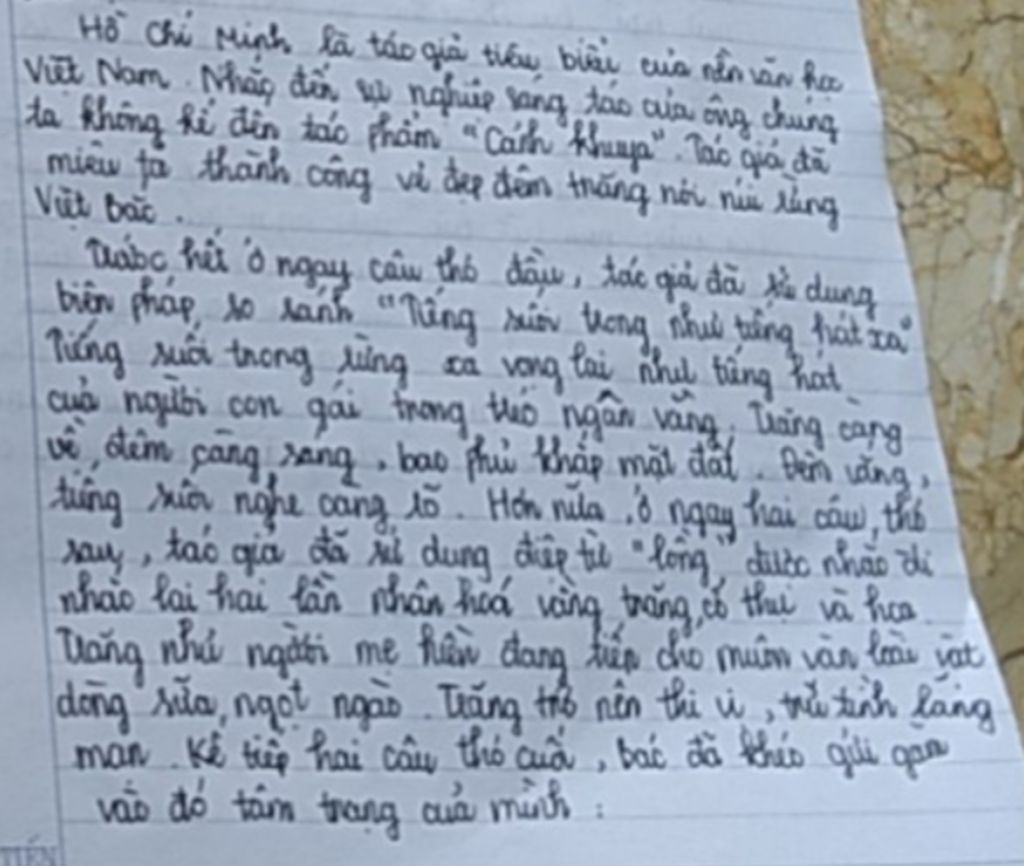 Hồ Chí Minh là tác giả tiêu biểu của nền văn học
Việt Nam. Nhắc đến sự nghiệp sáng tác của ông chúng
ta không kể đến tác phẩm "Cảnh khuya". Tác giả đã
miêu tả thành công vẻ đẹp đêm trăng nơi núi rừng
Việt Bắc.
Trước hết ở ngay câu thơ đầu, tác giả đã sử dụng
biện pháp so sánh "Tiếng suối trong như tiếng hát xa"
Tiếng suối trong rừng xa vọng lại như tiếng hát
của người con gái trong trẻo ngân vang. Trăng càng
về đêm càng sáng, bao phủ khắp mặt đất. Đêm vắng,
tiếng suối nghe càng rõ. Hơn nữa, ở ngay hai câu thơ
sau, tác giả đã sử dụng điệp từ "lồng" được nhắc đi
nhắc lại hai lần nhân hoá vầng trăng, cổ thụ và hoa.
Trăng như người mẹ hiền đang tiếp cho muôn vàn loài vật
dòng sữa ngọt ngào. Trăng trở nên thi vị, trữ tình lãng
mạn. Kế tiếp hai câu thơ cuối, bác đã khéo gửi gắm
vào đó tâm trạng của mình:
TIẾN